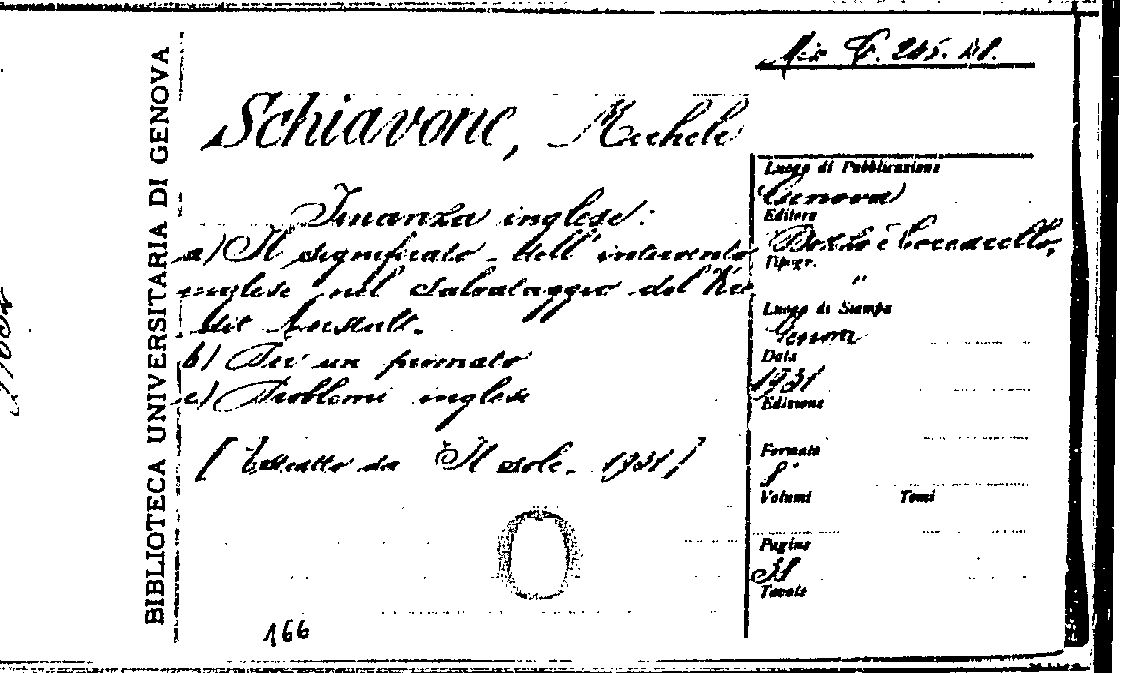 BIBLIOTECA UNIVERSITARIA DI GENOVA
Schiavone, Michele
Finanza inglese:
a) Il significato dell'intervento
inglese nel salvataggio del Kre
dit Anstalt.
b) Per un primato
c) Problemi inglesi
[Estratto da Il sole. 1931]
166
Luogo di Pubblicazione
Genova
Editore
Bozzo e Coccarello,
Tipogr.
"
Luogo di Stampa
Genova
Data
1931
Edizione
Formato
8°
Volumi Tomi
Pagine
31
Tavole